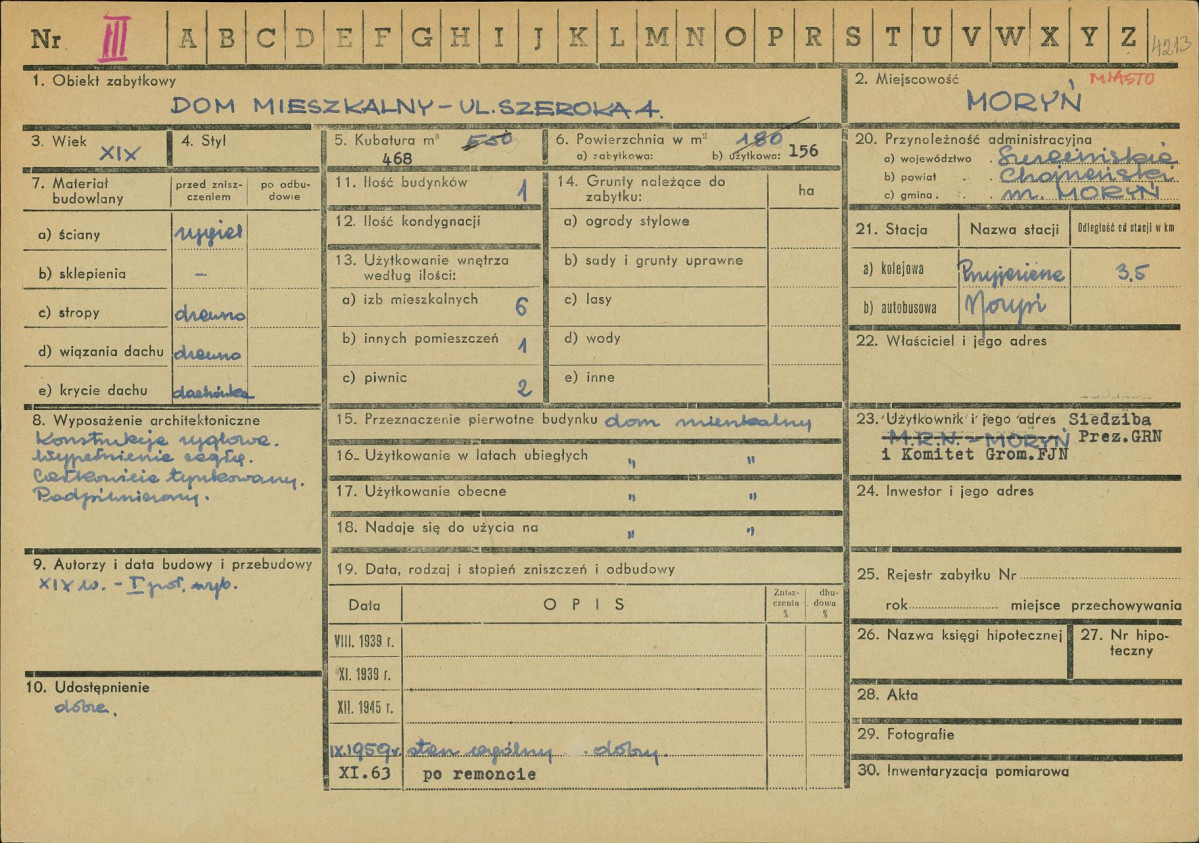 Nr III A B C D E F G H I J K L M N O P R S T U V W X Y Z 4213
1. Obiekt zabytkowy
DOM MIESZKALNY – UL. SZEROKA 4.
2. Miejscowość MIASTO
MORYŃ
3. Wiek XIX
4. Styl
5. Kubatura m³ 550
468
6. Powierzchnia w m² 180
a) zabytkowa: b) użytkowa: 156
20. Przynależność administracyjna
a) województwo . Szczecińskie
b) powiat . . Chojeński
c) gmina . . m. MORYŃ
7. Materiał budowlany
przed znisz-
czeniem
po odbu-
dowie
a) ściany rygiel
b) sklepienia –
c) stropy drewno
d) wiązania dachu drewno
e) krycie dachu dachówka
11. Ilość budynków 1
12. Ilość kondygnacji
13. Użytkowanie wnętrza
według ilości:
a) izb mieszkalnych 6
b) innych pomieszczeń 1
c) piwnic 2
14. Grunty należące do
zabytku:
ha
a) ogrody stylowe
b) sady i grunty uprawne
c) lasy
d) wody
e) inne
21. Stacja Nazwa stacji Odległość od stacji w km
a) kolejowa 3,5
b) autobusowa Moryń
22. Właściciel i jego adres
8. Wyposażenie architektoniczne
Konstrukcja ryglowa.
Wypełnienie cegłą.
Całkowicie tynkowany.
Podpiwniczony.
15. Przeznaczenie pierwotne budynku dom mieszkalny
16. Użytkowanie w latach ubiegłych " "
17. Użytkowanie obecne " "
18. Nadaje się do użycia na " "
23. Użytkownik i jego adres Siedziba
M.R.N. – MORYŃ Prez.GRN
i Komitet Grom.FJN
24. Inwestor i jego adres
9. Autorzy i data budowy i przebudowy
XIX w. – I poł.
10. Udostępnienie
dobre.
19. Data, rodzaj i stopień zniszczeń i odbudowy
Data OPIS
Znisz-
czenia
%
dbu-
dowa
%
VIII. 1939 r.
XI. 1939 r.
XII. 1945 r.
IX.1959 r. stan ogólny dobry.
XI.63 po remoncie
25. Rejestr zabytku Nr
rok miejsce przechowywania
26. Nazwa księgi hipotecznej
27. Nr hipo-
teczny
28. Akta
29. Fotografie
30. Inwentaryzacja pomiarowa